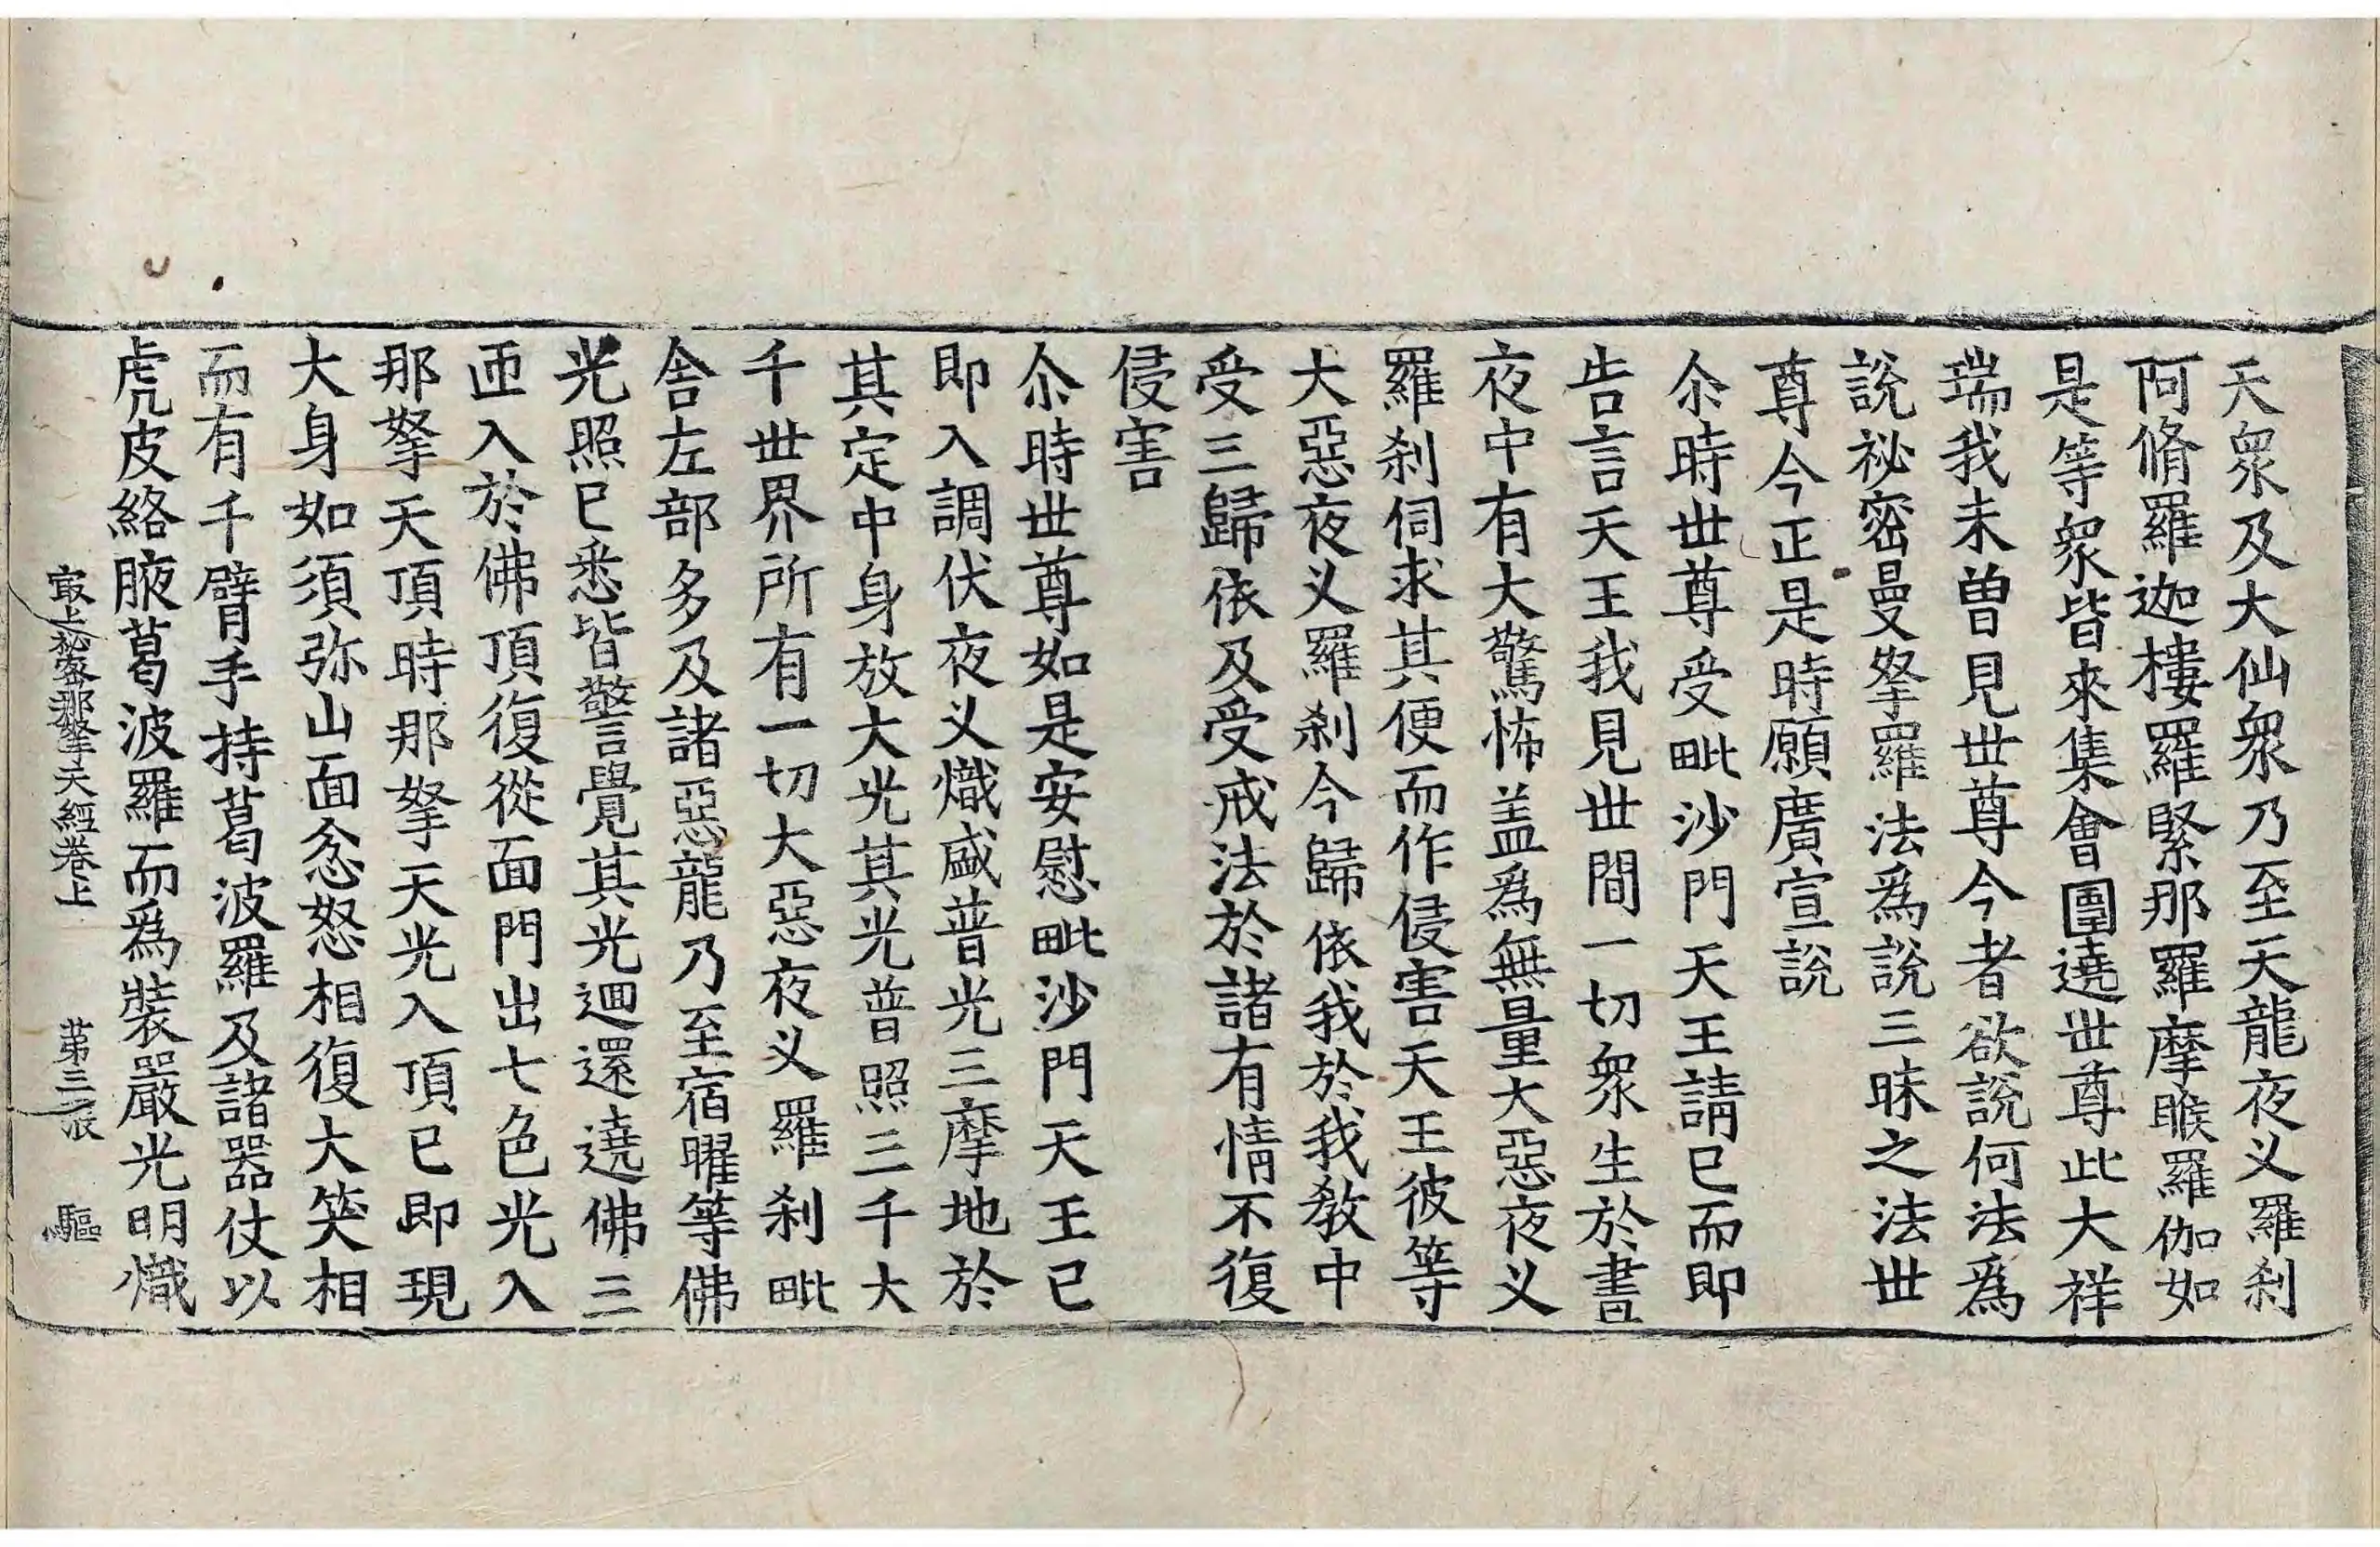 天衆及大仙衆乃至天龍夜叉羅刹
阿脩羅迦樓羅緊那羅摩睺羅伽如
是等衆皆來集會圍遶世尊此大祥
瑞我未曽見世尊今者欲說何法爲
說祕密曼拏羅法爲說三昧之法世
尊今正是時願廣宣說
尒時世尊受毗沙門天王請已而即
告言天王我見世間一切衆生於晝
夜中有大驚怖盖爲無量大惡夜叉
羅刹伺求其便而作侵害天王彼等
大惡夜叉羅刹今歸依我於我教中
受三歸依及受戒法於諸有情不復
侵害
尒時世尊如是安慰毗沙門天王已
即入調伏夜叉熾盛普光三摩地於
其定中身放大光其光普照三千大
千世界所有一切大惡夜叉羅刹毗
舍左部多及諸惡龍乃至宿曜等佛
光照已悉皆警覺其光迴還遶佛三
匝入於佛頂復從面門出七色光入
那拏天頂時那拏天光入頂已即現
大身如須弥山面忿怒相復大笑相
而有千臂手持葛波羅及諸器仗以
虎皮絡腋葛波羅而爲裝嚴光明熾
最上祕密那拏天經卷上 苐三張 驅